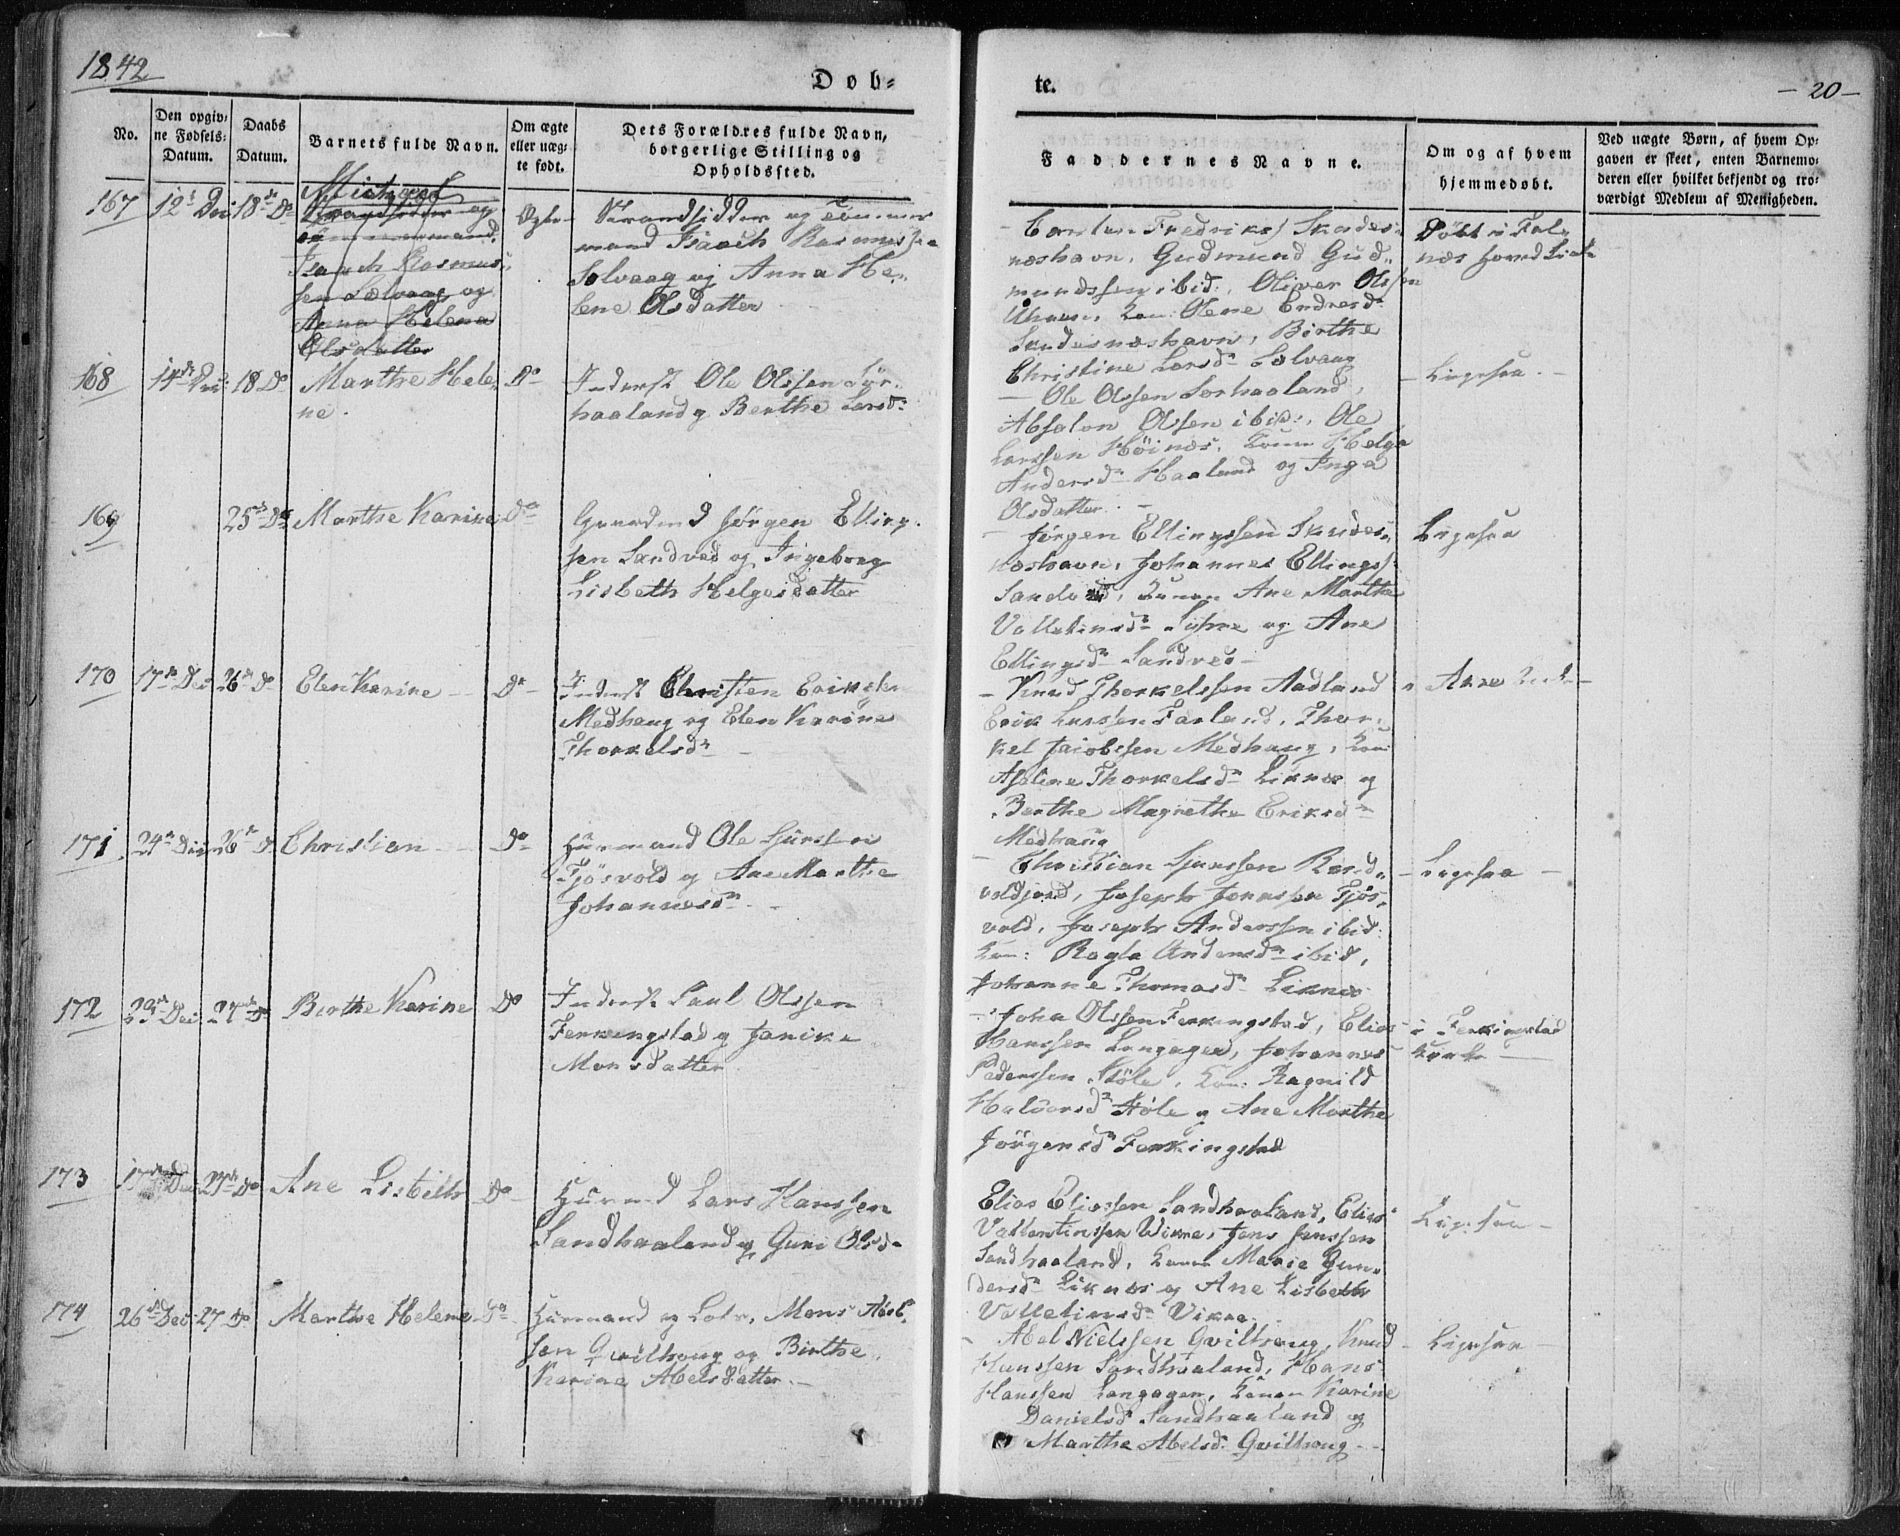 1842
Døb-
te.
- 20 -
No.
Den opgiv-
ne Fødsels-
Datum.
Daabs
Datum.
Barnets fulde Navn.
Om ægte
eller uæg-
te født.
Dets Forældres fulde Navn,
borgerlige Stilling og
Opholdssted.
Faddernes Navne.
Om og af hvem
hjemmedøbt.
Ved uægte Børn, af hvem Op-
gaven er skeet, enten Barnemo-
deren eller hvilket bekjendt og tro-
værdigt Medlem af Menigheden.
167
12te Dec
18de Do
Michael
Strandsidder og
Tømmermand
Isaach Rasmus-
sen Solvaag og
Anna Helena
Olsdatter
Ægte
Strandsidder og Tømmer
mand Isaach Rasmussen
Solvaag og Anna He-
lene Olsdatter
Fredriks Skudes-
næshavn, Gudmund Gud-
mundssen ibid:, Oliver Olssen
Kon: Olene Endresd
Skudesnæshavn, Birthe
Christine Larsd Solvaag
Døbt i Fal-
næs Hoved Kirke
168
14de Dec
18 Do
Marthe Hele-
ne.
Do
Inderst Ole Olssen Sør-
haaland og Berthe Larsd:
Ole Olssen Sørhaaland,
Absalon Olssen ibid:, Ole
Larssen Høinæs, Konen Helga
Andersd Haaland og Inga
Olsdatter.
Ligesaa
169
25de Do
Marthe Karine
Do
Gaardmd Jørgen Elling-
sen Sandved og Ingeborg
Lisbeth Helgesdatter
Jørgen Ellingssen Skudes-
næshavn, Johannes Ellings
Sandved, Konen Ane Marthe
Valletinsd Syhre og Ane
Ellingsd Sandved
Ligesaa
170
17de Dec
26de Do
Elen Karine
Do
Inderst Christen Erikssen
Medhaug og Elen Karine
Thorkelsd
Knud Thorkelssen Aadland
Erik Larssen Farland, Thor-
kel Jacobssen Medhaug, Kon
Aseline Thorkelsd Liknæs og
Berthe Magrethe Eriksd
Medhaug
i Akre Kirke
171
24de Dec
26de D
Christian
Do
Huusmand Ole Sjurssen
Tjøsvold og Ane Marthe
Johannesd
Christian Sjurssen
Joseph Jonassen Tjøs-
vold, Joseph Anderssen ibid:
Kon: Ragla Andersd ibid,
Johanne Thomasd Liknæs
Ligesaa
172
23de Dec
27de Do
Birthe Karine
Do
Inderst Paul Olssen
Ferkengstad og Janike
Monsdatter
John Olssen Ferkingstad, Elias
Hanssen Langager, Johannes
Pederssen Støle, Kon: Ragnild
Halvorsd Støle og Ane Marthe
Jørgensd Ferkingstad
i Ferkingstad
Kirke
173
17de Dec
27de Do
Ane Lisbeth
Do
Huusmd Lars Hanssen
Sandhaaland og Guri Olsd
Elias Eliassen Sandhaaland, Elias
Vallentinssen Wikre, Jens Jenssen
Sandhaaland, Konen Marie Gun-
dersd Liknæs og Ane Lisbeth
Valletinsd Vikre
Ligesaa
174
26de Dec
27 Do
Marthe Helene
Do
Huusmand og Lods, Mons Absl
sen Qvilhaug og Birthe
Karine Abelsdatter.
Abel Nielssen Qvilhaug, Knud
Hanssen Sandhaaland, Hans
Hanssen Langager, Konen Karine
Danielsd Sandhaaland og
Marthe Abelsd: Qvilhaug
Ligesaa